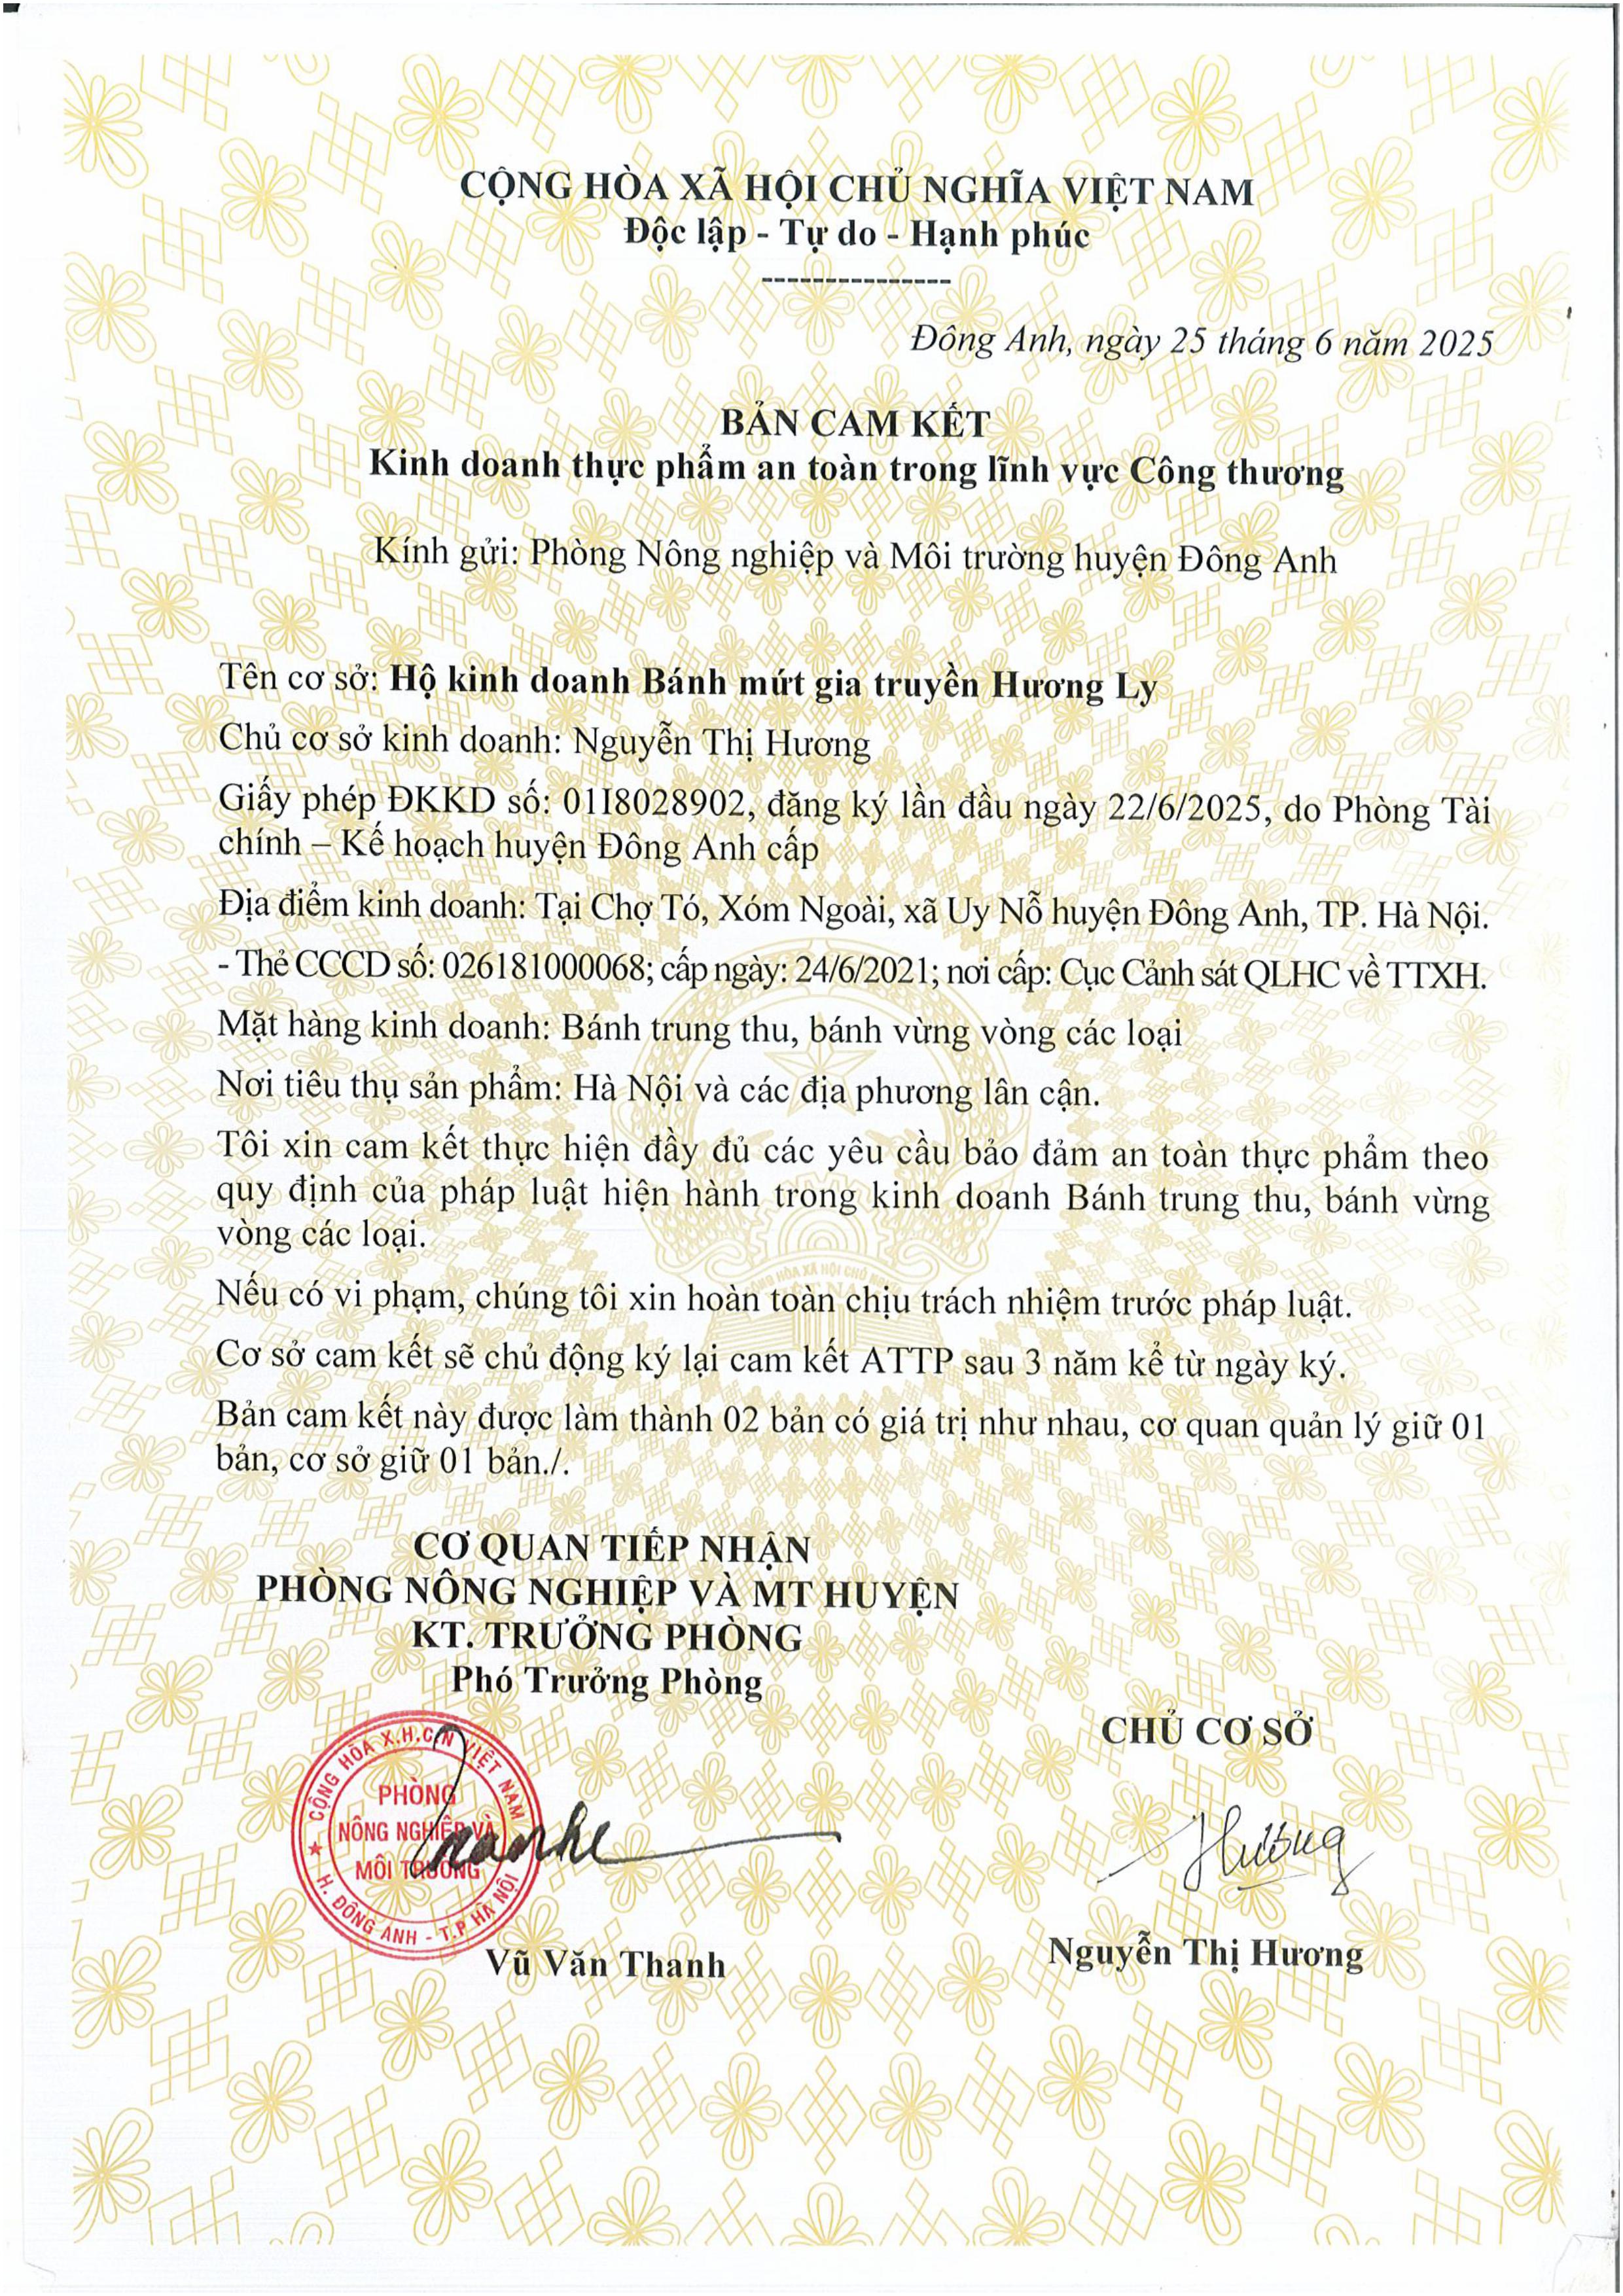 CỘNG HÒA XÃ HỘI CHỦ NGHĨA VIỆT NAM
Độc lập - Tự do - Hạnh phúc
---------------
Đông Anh, ngày 25 tháng 6 năm 2025
BẢN CAM KẾT
Kinh doanh thực phẩm an toàn trong lĩnh vực Công thương
Kính gửi: Phòng Nông nghiệp và Môi trường huyện Đông Anh
Tên cơ sở: Hộ kinh doanh Bánh mứt gia truyền Hương Ly
Chủ cơ sở kinh doanh: Nguyễn Thị Hương
Giấy phép ĐKKD số: 01I8028902, đăng ký lần đầu ngày 22/6/2025, do Phòng Tài
chính – Kế hoạch huyện Đông Anh cấp
Địa điểm kinh doanh: Tại Chợ Tó, Xóm Ngoài, xã Uy Nỗ huyện Đông Anh, TP. Hà Nội.
- Thẻ CCCD số: 026181000068; cấp ngày: 24/6/2021; nơi cấp: Cục Cảnh sát QLHC về TTXH.
Mặt hàng kinh doanh: Bánh trung thu, bánh vừng vòng các loại
Nơi tiêu thụ sản phẩm: Hà Nội và các địa phương lân cận.
Tôi xin cam kết thực hiện đầy đủ các yêu cầu bảo đảm an toàn thực phẩm theo
quy định của pháp luật hiện hành trong kinh doanh Bánh trung thu, bánh vừng
vòng các loại.
Nếu có vi phạm, chúng tôi xin hoàn toàn chịu trách nhiệm trước pháp luật.
Cơ sở cam kết sẽ chủ động ký lại cam kết ATTP sau 3 năm kể từ ngày ký.
Bản cam kết này được làm thành 02 bản có giá trị như nhau, cơ quan quản lý giữ 01
bản, cơ sở giữ 01 bản./.
CƠ QUAN TIẾP NHẬN
PHÒNG NÔNG NGHIỆP VÀ MT HUYỆN
KT. TRƯỞNG PHÒNG
Phó Trưởng Phòng
CHỦ CƠ SỞ
CỘNG HÒA X.H.C.N VIỆT NAM
PHÒNG
NÔNG NGHIỆP VÀ
MÔI TRƯỜNG
H. ĐÔNG ANH - T.P HÀ NỘI
Hương
Vũ Văn Thanh
Nguyễn Thị Hương